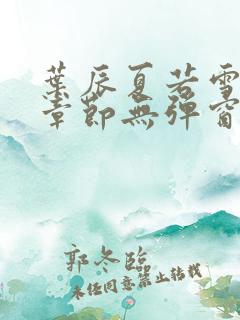 葉辰夏若雪
章節無彈窗
郭冬臨
未任同意禁止转载